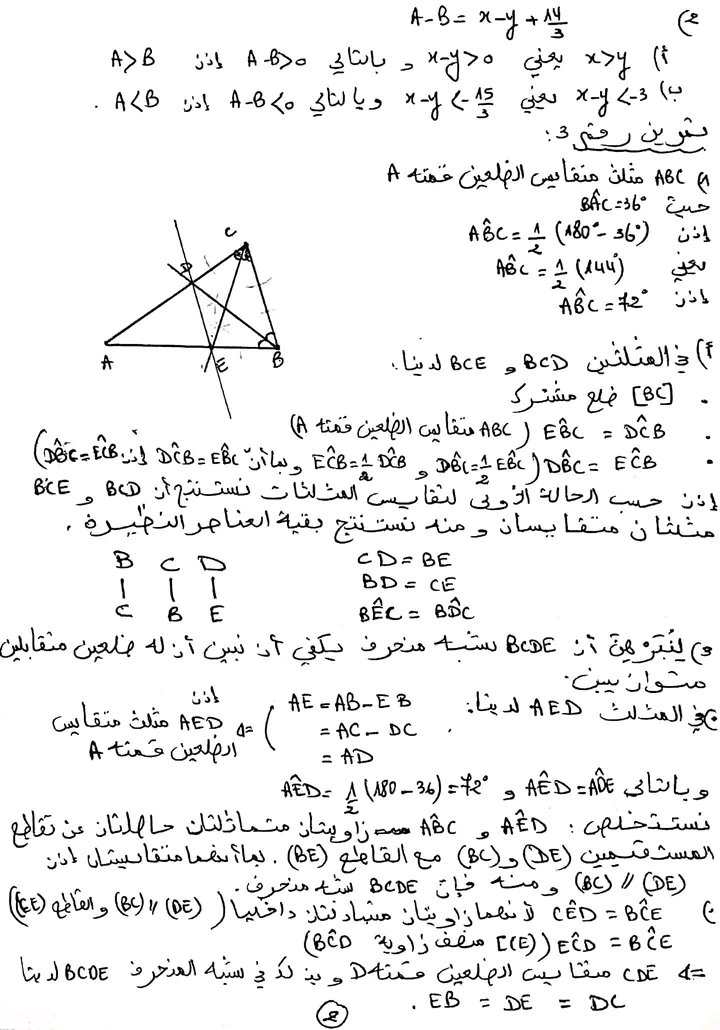 2) A-B = x-y + 14/3
أ) x>y يعني x-y>0 و بالتالي A-B>0 إذن A>B
ب) x-y<-3 يعني x-y<-15/3 وبالتالي A-B<0 إذن A<B .
تمرين رقم 3 :
1) ABC مثلث متقايس الضلعين قمته A
حيث BÂC=36°
إذن AB̂C = 1/2 (180°-36°)
يعني AB̂C = 1/2 (144°)
إذن AB̂C = 72°
C
D
A
E
B
أ) في المثلثين BCD و BCE لدينا:
. [BC] ضلع مشترك
. EB̂C = DĈB (ABC متقايس الضلعين قمته A)
. DB̂C = EĈB (DB̂C=1/2 EB̂C و EĈB=1/2 DĈB وبما أن DĈB=EB̂C إذن DB̂C=EĈB)
إذن حسب الحالة الأولى لتقايس المثلثات نستنتج أن BCD و BCE
مثلثان متقايسان ومنه نستنتج بقية العناصر النظيرة .
B C D
| | |
C B E
CD = BE
BD = CE
BÊC = BD̂C
3) لنبرهن أن BCDE شبه منحرف يكفي أن نبين أن له ضلعين متقابلين
متوازيين.
في المثلث AED لدينا:
AE = AB-EB
= AC-DC
= AD
إذن
AED مثلث متقايس
الضلعين قمته A
وبالتالي AÊD=AD̂E و AÊD = 1/2 (180-36)=72°
نستخلص : AÊD و AB̂C زاويتان متماثلتان حاصلتان عن تقاطع
المستقيمين (DE) و (BC) مع القاطع (BE) . بما أنهما متقايستان إذن
(DE) // (BC) ومنه فإن BCDE شبه منحرف.
CÊD = BĈE لأنهما زاويتان متبادلتان داخليا ((DE) // (BC) والقاطع (CE))
EĈD = BĈE ([CE) منصف زاوية BĈD)
=> CDE متقايس الضلعين قمته D وبذلك في شبه المنحرف BCDE لدينا
EB = DE = DC .
2